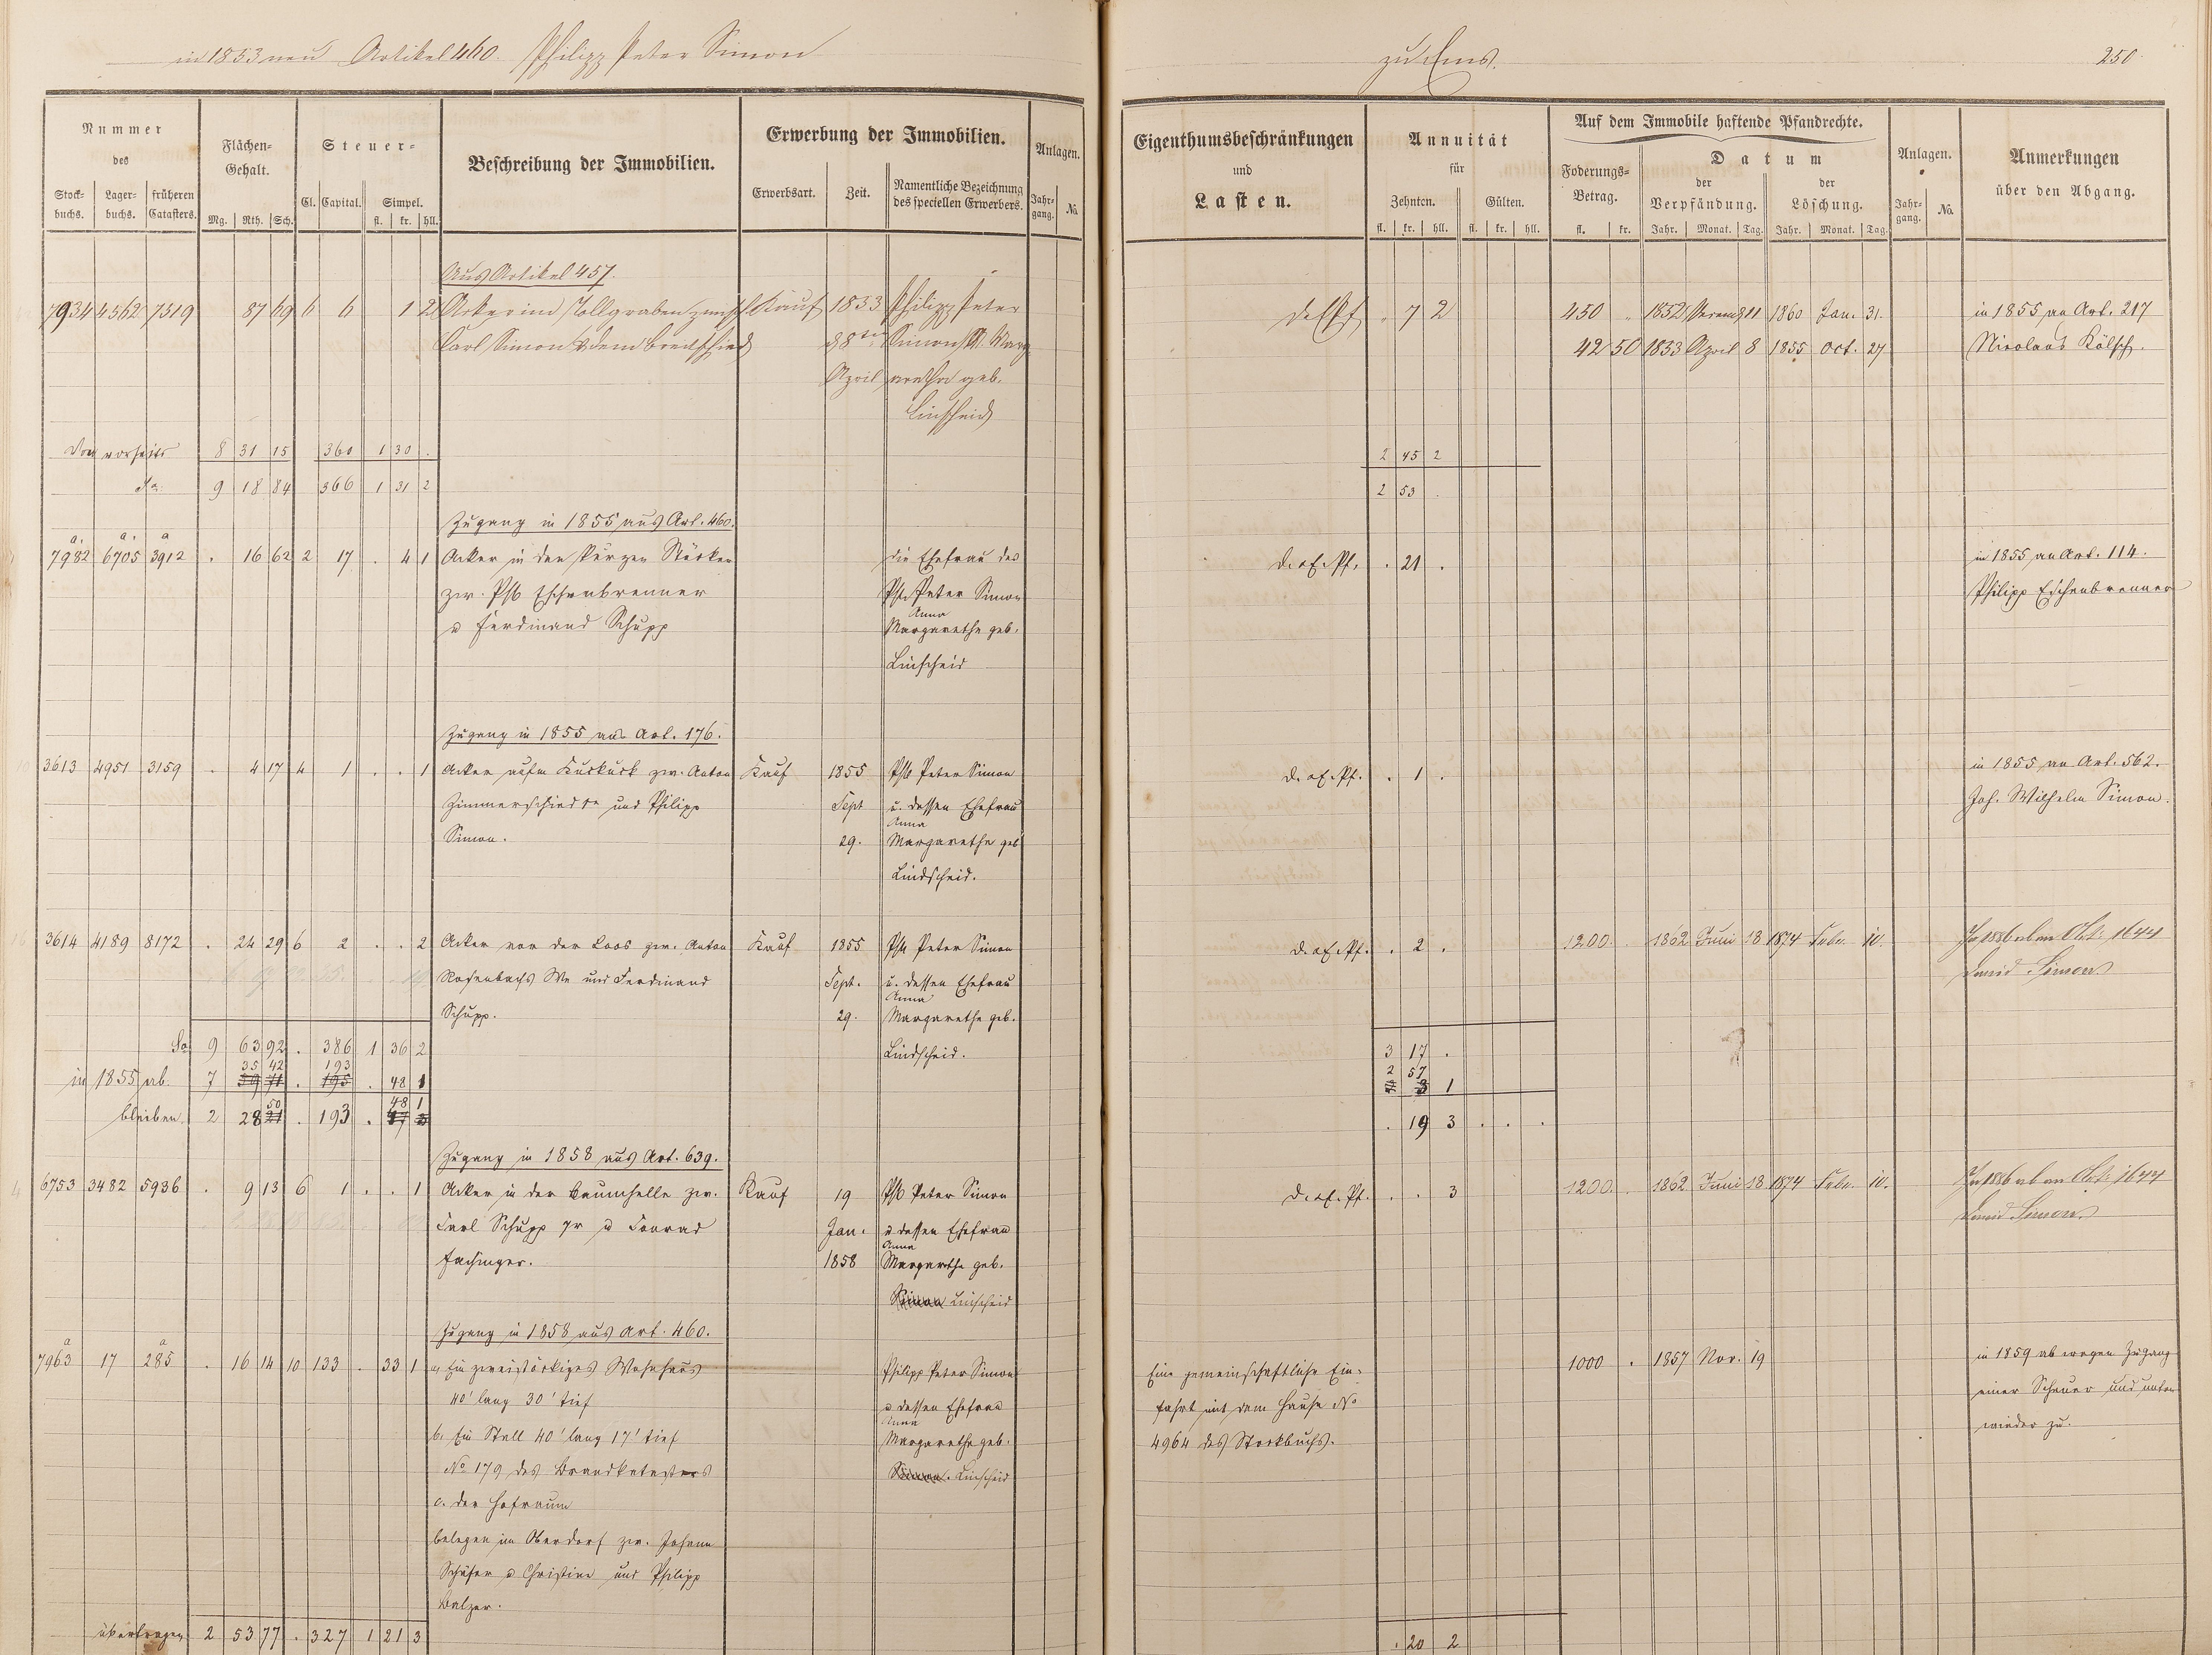 in 1853 neu Artikel 460. Philipp Peter Simon
zu Ems.
250.
Nummer
des
Stock-
buchs.
Lager-
buchs.
früheren
Catasters.
Flächen-
Gehalt.
Mg. Rth. Sch.
Steuer-
Cl. Capital. Simpel.
fl. kr. hll.
Beschreibung der Immobilien.
Erwerbung der Immobilien.
Erwerbsart. Zeit. Namentliche Bezeichnung
des speciellen Erwerbers.
Anlagen.
Jahr-
gang. No.
Eigenthumsbeschränkungen
und
Lasten.
Annuität
für
Zehnten. Gülten.
fl. kr. hll. fl. kr. hll.
Auf dem Immobile haftende Pfandrechte.
Foderungs-
Betrag.
fl. kr.
Datum
der
Verpfändung.
Jahr. Monat. Tag.
der
Löschung.
Jahr. Monat. Tag.
Anlagen.
Jahr-
gang. No.
Anmerkungen
über den Abgang.
Aus Artikel 457.
7934 4562 7519 87 69 6 6 1 2 Acker im Kauf 1833 Philipp Peter
Carl Simon d 8ten Simon
April geb.
Linscheid
7 2 450 1852 11 1860 Jan. 31. in 1855 an Art. 217
42 50 1833 April 8 1855 Oct. 27 Nicolaus Kölsch.
Von vorseits 8 31 15 360 1 30 . 2 45 2
Sa. 9 18 84 366 1 31 2 2 53 .
Zugang in 1855 aus Art. 460.
7982 a. 6705 a. 3912 a . 16 62 2 17 . 4 1 Acker in den
zw. Phb Eschenbrenner
u Ferdinand Schupp
die Ehefrau des
Ph. Peter Simon
Anna
Margarethe geb.
Linscheid
. 21 . in 1855 an Art. 114.
Philipp Eschenbrenner
Zugang in 1855 aus Art. 176.
3613 4951 3159 . 4 17 4 1 . . 1 Acker aufm Kuckuck zw. Anton Kauf 1855 Phb Peter Simon
Zimmerschied und Philipp Sept u. dessen Ehefrau
Anna
Simon. 29. Margarethe geb
Lindscheid.
. 1 . in 1855 an Art. 562.
Joh. Wilhelm Simon.
3614 4189 8172 . 24 29 6 2 . . 2 Acker vor der Loos zw. Anton Kauf 1855 Phb Peter Simon
Rosenbachs We und Ferdinand Sept. u. dessen Ehefrau
Anna
Schupp. 29. Margarethe geb.
Lindscheid.
. 2 . 1200. 1862 Juni 18 1874 Febr. 10. In 1886 ab an Art. 1644
David Simon
Sa 9 63 92 . 386 1 36 2 3 17 .
35 42 193 2 57
in 1855 ab. 7 59 71 . 195 . 48 1 3 1
50 48 1
bleiben. 2 28 21 . 193 . 47 . 19 3 . . .
Zugang in 1858 aus Art. 639.
6753 3482 5936 . 9 13 6 1 . . 1 Acker in der Baumhelle zw. Kauf 19 Phb Peter Simon
Carl Schupp u Conrad Jan. u dessen Ehefrau
Anna
Fachinger. 1858 Margarethe geb.
Simon Linscheid
. . 3 1200. 1862 Juni 18 1874 Febr. 10. In 1886 ab an Art. 1644
David Simon
Zugang in 1858 aus Art. 460.
7963 a 17 285 a . 16 14 10 133 . 33 1 a, Ein zweistöckiges Wohnhaus
40' lang 30' tief
b. Ein Stall 40' lang 17' tief
No 179 des Brandkatasters
c. der Hofraum
belegen im Oberdorf zw. Johann
Schäfer u Christine und Philipp
Balzer.
Philipp Peter Simon
u dessen Ehefrau
Anna
Margarethe geb.
Simon. Linscheid
Eine gemeinschaftliche Ein-
fahrt mit dem Hause No
4964 des Stockbuchs.
1000 . 1857 Nov. 19 in 1859 ab wegen Zugang
einer Scheuer und unten
wieder zu.
übertragen 2 53 77 . 327 1 21 3 . 20 2